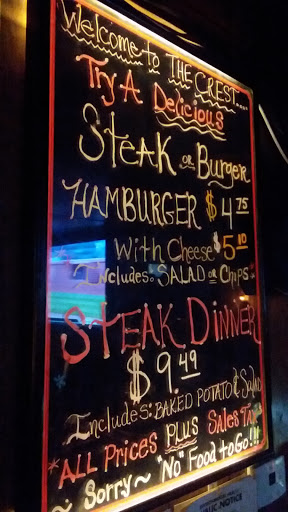 Welcome to THE CREST....
Try A Delicious
Steak or Burger
HAMBURGER $4.75
With Cheese $5.10
Includes: SALAD or Chips
STEAK DINNER
$9.49
Includes: BAKED POTATO & Salad
*ALL Prices PLUS Sales Tax
~ Sorry ~ "No" Food to Go!!!
PUBLIC NOTICE